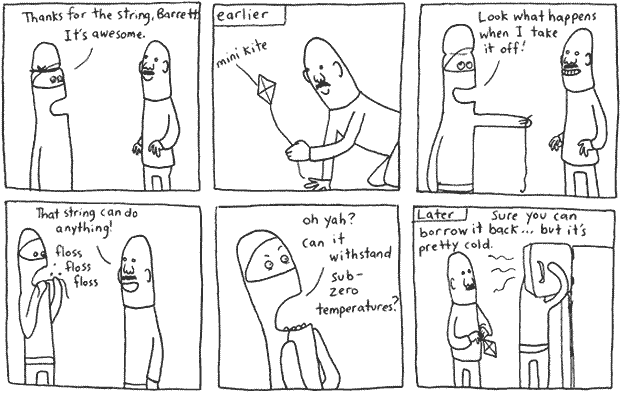 Thanks for the string, Barrett.
It's awesome.
earlier
mini kite
Look what happens
when I take
it off!
That string can do
anything!
floss
floss
floss
oh yah?
can it
withstand
sub-
zero
temperatures?
Later
Sure you can
borrow it back... but it's
pretty cold.